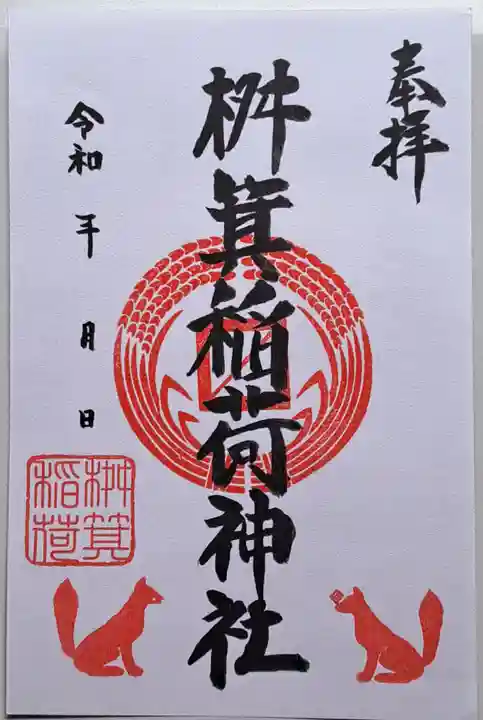 奉拝
桝箕稲荷神社
令和 年 月 日
桝箕
稲荷